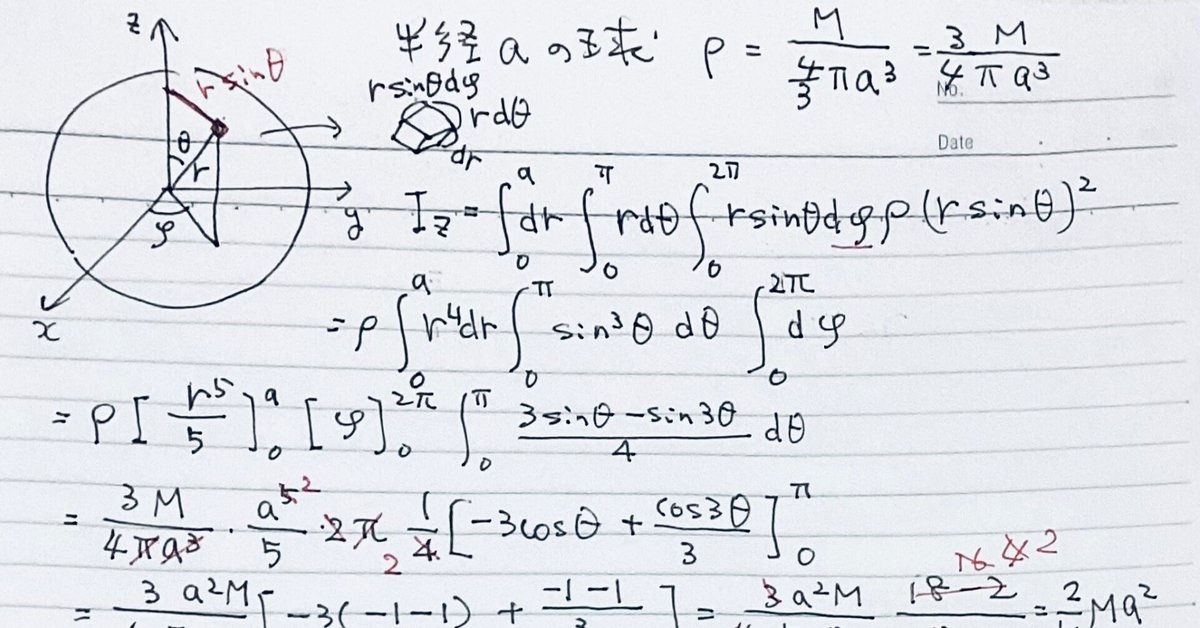 z
r sinθ
θ
r
y
φ
x
半径 a の球 ρ = M / (4/3 πa³) = 3 M / (4 π a³)
No.
Date
r sinθdφ
rdθ
dr
I_z = ∫₀^a dr ∫₀^π rdθ ∫₀^2π r sinθdφ ρ (r sinθ)²
= ρ ∫₀^a r⁴dr ∫₀^π sin³θ dθ ∫₀^2π dφ
= ρ [ r⁵/5 ]₀^a [φ]₀^2π ∫₀^π (3 sinθ − sin3θ)/4 dθ
= 3 M / (4πa³) · a⁵/5 · 2π 1/4 [ −3cosθ + cos3θ/3 ]₀^π
= 3 a²M [ −3(−1−1) + (−1−1)/3 ] = 3 a²M 18−2 = 2 Ma²